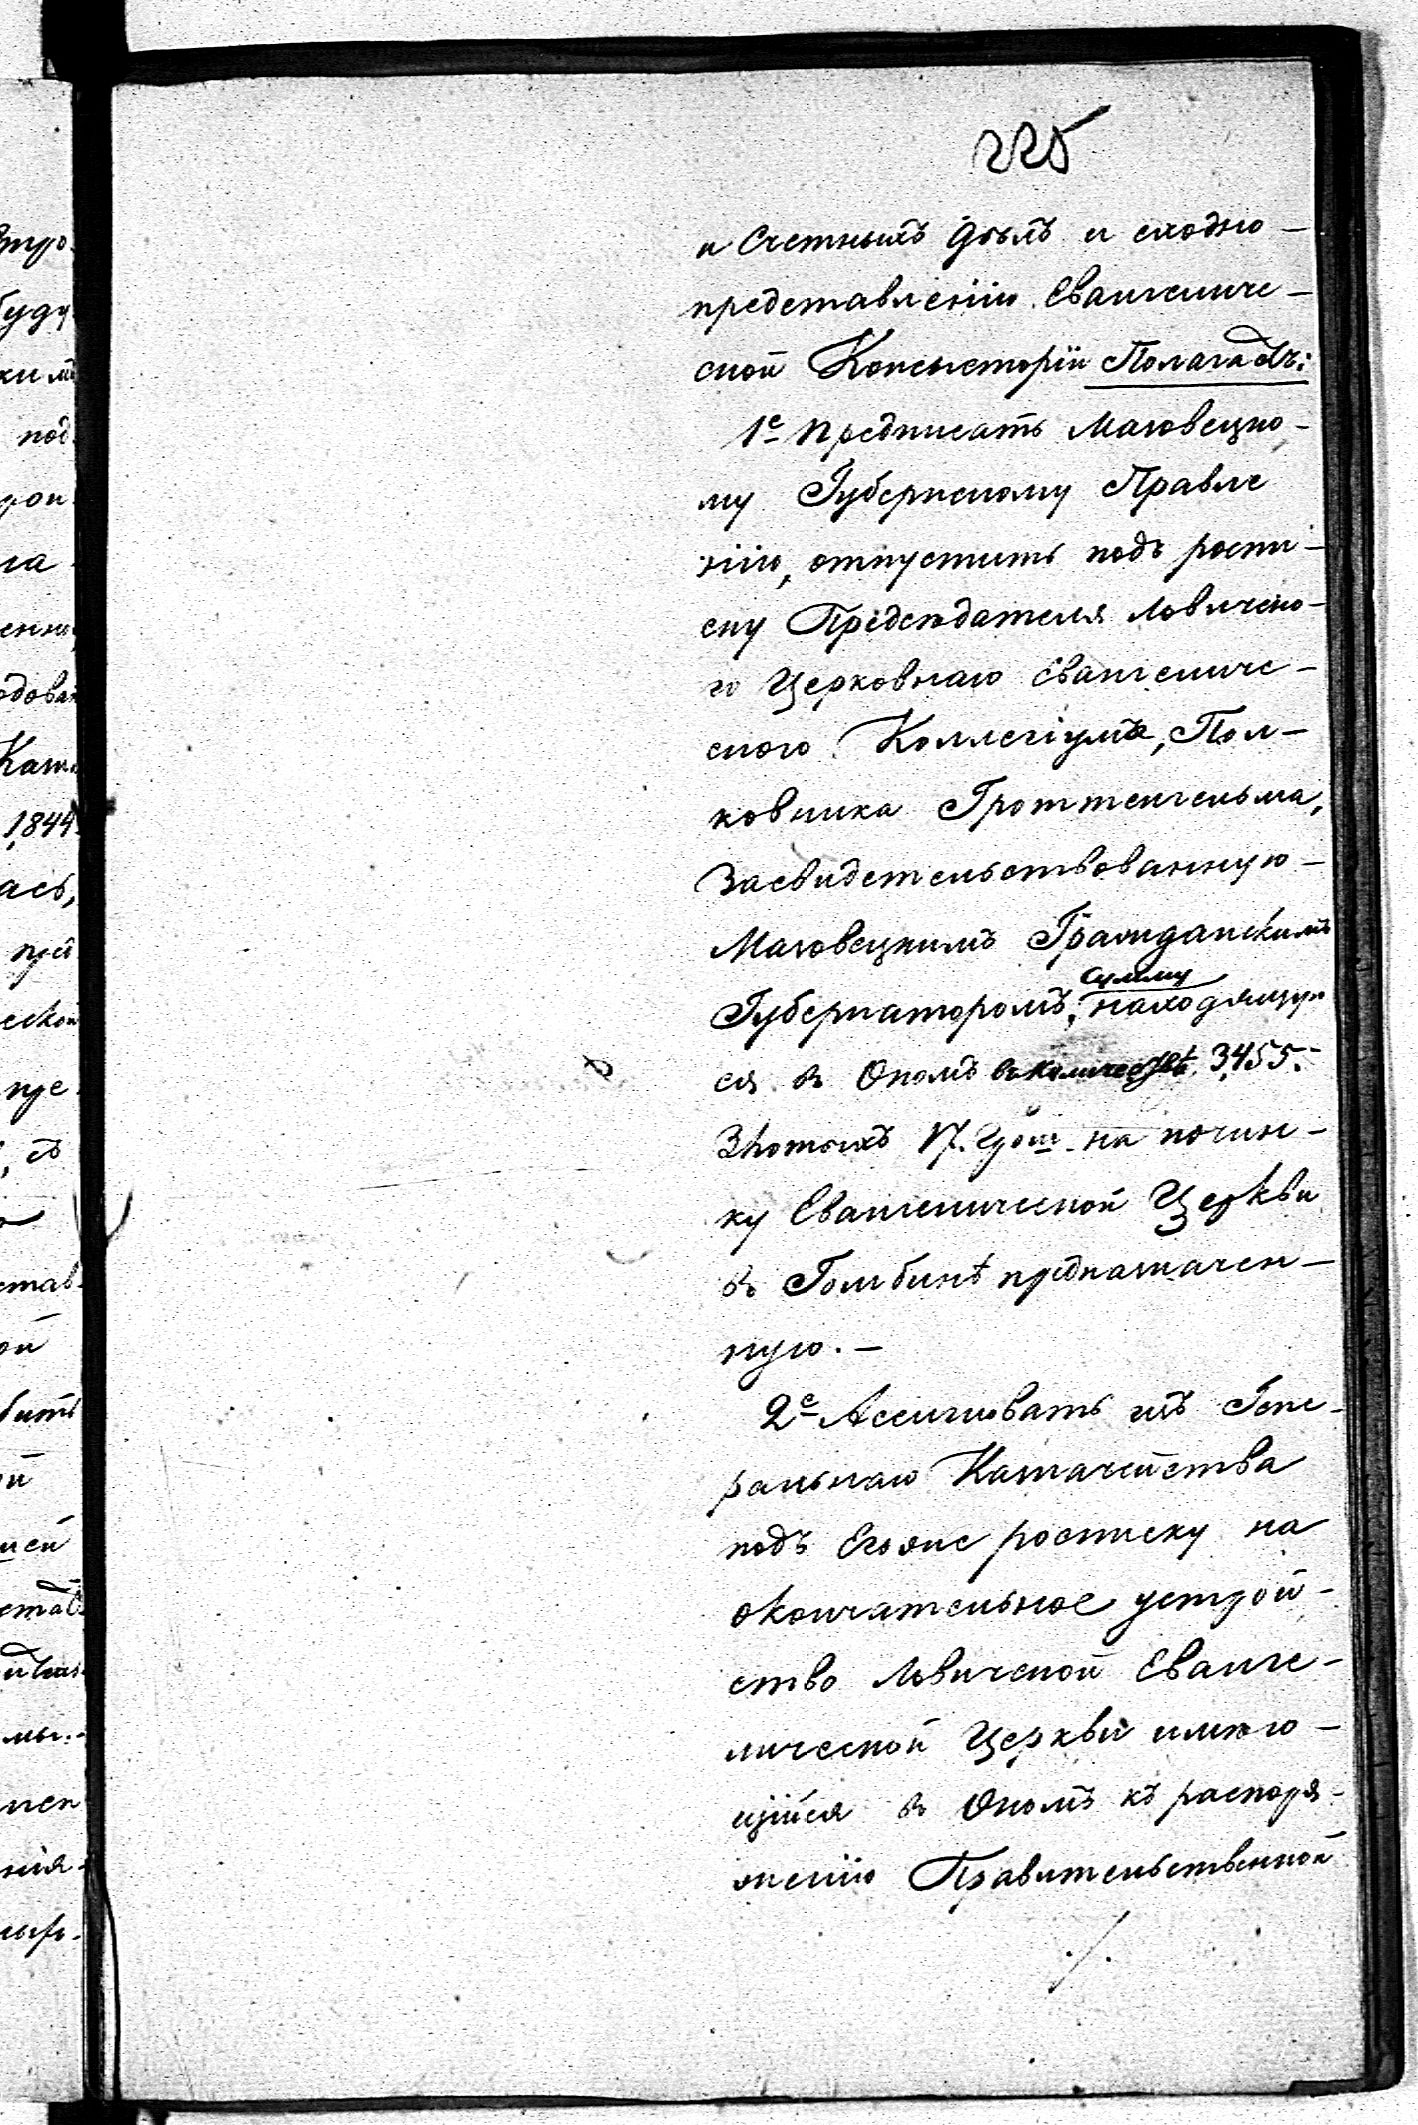 225
и Счетныхъ Дѣлъ и сходно —
представленію Евангеличе —
ской Консысторіи Полагаетъ:
1е Предписать Мазовецко —
му Губернскому Правле
нію, отпустить подъ роспи —
ску Председателя Ловичско —
го Церковнаго Евангеличе —
ского Коллегіума, Пол —
ковника Гроттенгельма,
Засвидетельствованную —
Мазовецкимъ Гражданскимъ
сумму
Губернаторомъ, находящую
ся въ Ономъ въ количествѣ 3,455.
Злотыхъ 17. Грош. на почин —
ку Евангелической Церкви
въ Гомбинѣ предназначен —
ную. —
2е Ассигновать изъ Гене —
ральнаго Казначейства
подъ Егоже росписку на
окончательное устрой —
ство Ловичской Еванге —
лической Церкви имѣю —
щійся въ Ономъ къ распоря —
женію Правительственной
./.
тро
буду
кимъ
под
ла
Кат
1844.
ась,
пред
ской
пре
, съ
став
ой
бить
ей
мы.
нія